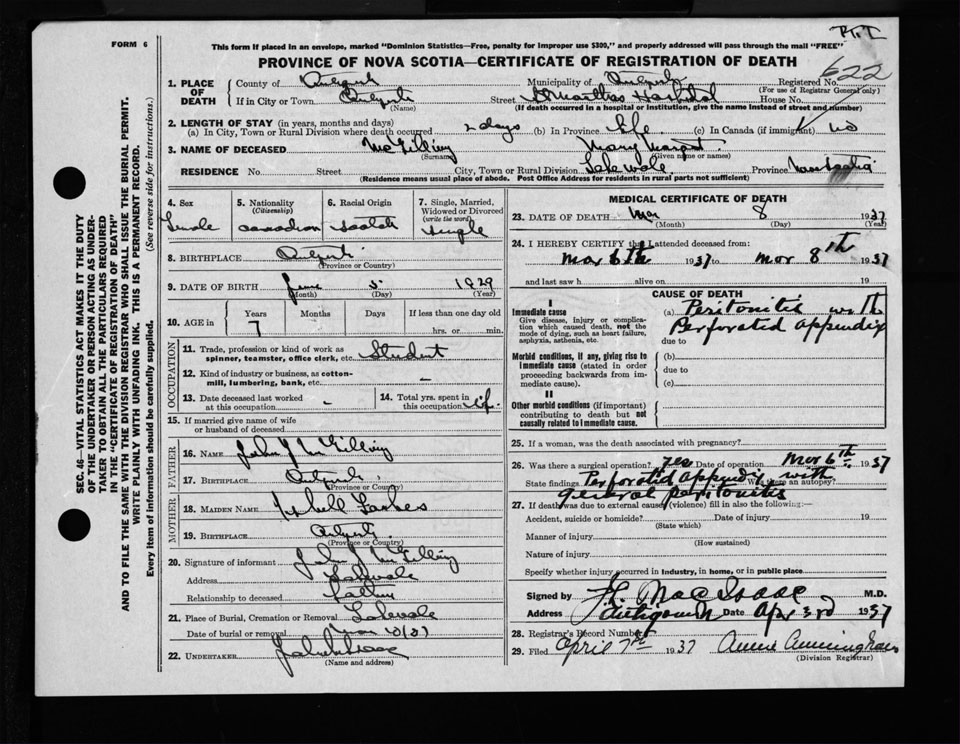 FORM 6
This form if placed in an envelope, marked "Dominion Statistics—Free, penalty for improper use $300," and properly addressed will pass through the mail "FREE"
PROVINCE OF NOVA SCOTIA—CERTIFICATE OF REGISTRATION OF DEATH
622
1. PLACE OF DEATH
County of
Municipality of
Registered No.
(For use of Registrar General only)
If in City or Town
(Name)
Street
House No.
(If death occurred in a hospital or institution, give the name instead of street and number)
2. LENGTH OF STAY (in years, months and days)
(a) In City, Town or Rural Division where death occurred 2 days (b) In Province life (c) In Canada (if immigrant) no
3. NAME OF DECEASED McGillivray Mary Margaret
(Surname) (Given name or names)
RESIDENCE No. Street City, Town or Rural Division Province Nova Scotia
(Residence means usual place of abode. Post Office Address for residents in rural parts not sufficient)
4. Sex
Female
5. Nationality
(Citizenship)
Canadian
6. Racial Origin
Scotch
7. Single, Married, Widowed or Divorced
(write the word)
Single
8. BIRTHPLACE
(Province or Country)
9. DATE OF BIRTH June 5 1929
(Month) (Day) (Year)
10. AGE in
Years Months Days If less than one day old
7 hrs. or min.
OCCUPATION
11. Trade, profession or kind of work as spinner, teamster, office clerk, etc. Student
12. Kind of industry or business, as cotton-mill, lumbering, bank, etc. -
13. Date deceased last worked at this occupation -
14. Total yrs. spent in this occupation
15. If married give name of wife or husband of deceased
FATHER
16. NAME John J McGillivray
17. BIRTHPLACE
(Province or Country)
MOTHER
18. MAIDEN NAME
19. BIRTHPLACE
(Province or Country)
20. Signature of informant John J McGillivray
Address
Relationship to deceased Father
21. Place of Burial, Cremation or Removal
Date of burial or removal
22. UNDERTAKER
(Name and address)
MEDICAL CERTIFICATE OF DEATH
23. DATE OF DEATH Mar 8 1937
(Month) (Day) (Year)
24. I HEREBY CERTIFY that I attended deceased from:
Mar 6th 1937 to Mar 8th 1937
and last saw h alive on 19
CAUSE OF DEATH
I
Immediate cause
Give disease, injury or complication which caused death, not the mode of dying, such as heart failure, asphyxia, asthenia, etc.
(a) Peritonitis with
Perforated appendix
due to
Morbid conditions, if any, giving rise to immediate cause (stated in order proceeding backwards from immediate cause).
(b)
due to
(c)
II
Other morbid conditions (if important) contributing to death but not causally related to immediate cause.
25. If a woman, was the death associated with pregnancy?
26. Was there a surgical operation? yes Date of operation Mar 6th 1937
State findings Perforated appendix with Was there an autopsy?
general peritonitis
27. If death was due to external causes (violence) fill in also the following:—
Accident, suicide or homicide? Date of injury 19
(State which)
Manner of injury
(How sustained)
Nature of injury
Specify whether injury occurred in industry, in home, or in public place
Signed by H. MacIsaac M.D.
Address Antigonish Date Apr 3rd 1937
28. Registrar's Record Number
29. Filed April 7th 1937 Annie Cunningham
(Division Registrar)
SEC. 46—VITAL STATISTICS ACT MAKES IT THE DUTY
OF THE UNDERTAKER OR PERSON ACTING AS UNDER-
TAKER TO OBTAIN ALL THE PARTICULARS REQUIRED
IN THE "CERTIFICATE OF REGISTRATION OF DEATH"
AND TO FILE THE SAME WITH THE DIVISION REGISTRAR WHO SHALL ISSUE THE BURIAL PERMIT.
WRITE PLAINLY WITH UNFADING INK. THIS IS A PERMANENT RECORD.
Every item of information should be carefully supplied. (See reverse side for instructions.)